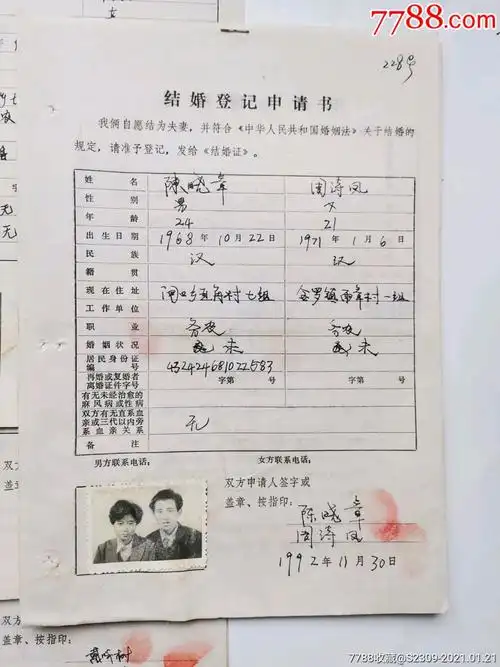 7788.com
228号
结婚登记申请书
我俩自愿结为夫妻，并符合《中华人民共和国婚姻法》关于结婚的
规定，请准予登记，发给《结婚证》。
姓名 陈晓章 周涛凤
性别 男 女
年龄 24 21
出生日期 1968年10月22日 1971年1月6日
民族 汉 汉
籍贯
现在住址 七组 村一组
工作单位
职业 务农 务农
婚姻状况 未 未
居民身份证
编号 432424681022583
再婚或复婚者
离婚证件字号 字第 号 字第 号
有无未经治愈的
麻风病或性病
双方有无直系血
亲或三代以内旁
系血亲关系 无
备注
男方联系电话： 女方联系电话：
双方申请人签字或
盖章、按指印：
陈晓章
周涛凤
1992年11月30日
双方
盖章
双方
盖章、按指印：
7788收藏@S2309-2021.01.21